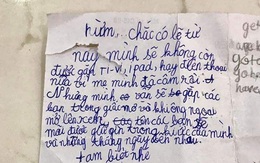 hừm... chắc có lẽ từ
này mình sẽ không còn
được gần TI-VI, ipad, hay điện thoại
nữa bì mẹ mình đã cấm rồi.
Nhưng mình vẫn sẽ gặp các
bạn trong giấc mơ và không ngoại
mở lên xem. các bạn sẽ
mãi được giữ gìn trong ước của mình
và những tháng ngày bên nhau.
tạm biệt nhé
get
have
got
got
have